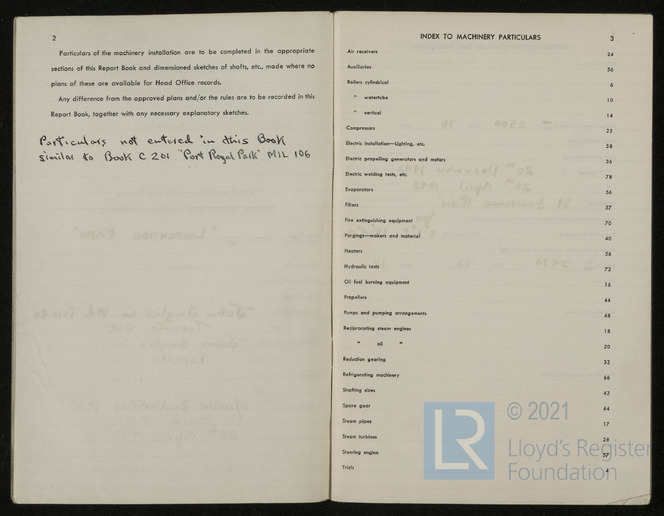 2
Particulars of the machinery installation are to be completed in the appropriate
sections of this Report Book and dimensioned sketches of shafts, etc., made where no
plans of these are available for Head Office records.
Any difference from the approved plans and/or the rules are to be recorded in this
Report Book, together with any necessary explanatory sketches.
Particulars not entered in this Book
similar to Book C 201 "Port Royal Park" MIL 106
INDEX TO MACHINERY PARTICULARS 3
Air receivers 24
Auxiliaries 56
Boilers cylindrical 6
" watertube 10
" vertical 14
Compressors 22
Electric installation—Lighting, etc. 58
Electric propelling generators and motors 36
Electric welding tests, etc. 78
Evaporators 56
Filters 57
Fire extinguishing equipment 70
Forgings—makers and material 40
Heaters 56
Hydraulic tests 72
Oil fuel burning equipment 16
Propellers 44
Pumps and pumping arrangements 48
Reciprocating steam engines 18
" oil " 20
Reduction gearing 32
Refrigerating machinery 66
Shafting sizes 42
Spare gear 64
Steam pipes 17
Steam turbines 28
Steering engine 57
Trials 4
LR
© 2021
Lloyd's Register
Foundation